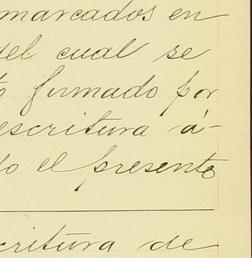 marcados en
del cual se
firmado por
escritura á-
do el presente
critura de